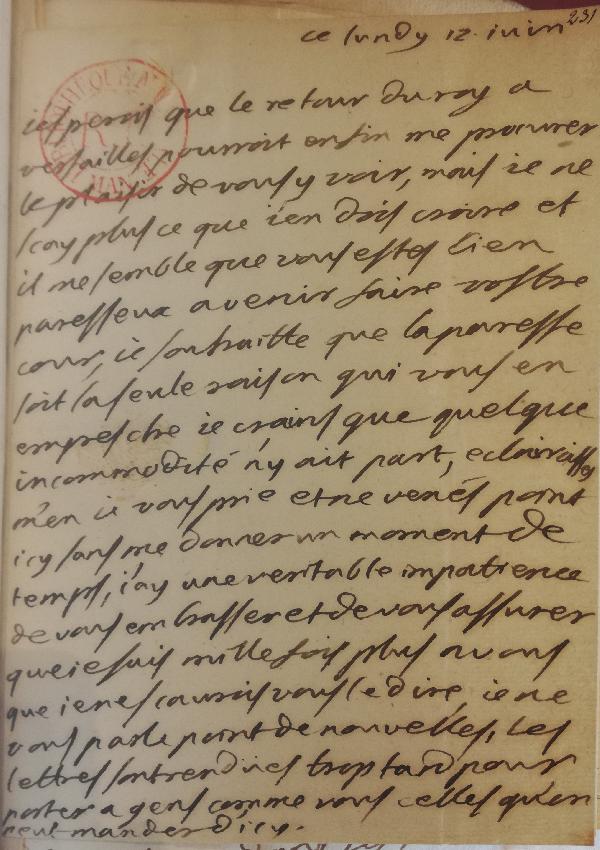 231
ce lundy 12 juin
iesperois que le retour du roy a
versailles pourroit enfin me procurer
le plaisir de vous y voir, mais ie ne
scay plus ce que ien dois croire et
il me semble que vous estes bien
paresseux a venir faire vostre
cour, ie souhaitte que la paresse
soit la seule raison qui vous en
empresche ie crains que quelque
incommodité n'y ait part, eclaircisses
m'en ie vous prie et ne venés point
icy sans me donner un moment de
temps, i'ay une veritable impatience
de vous embrasser et de vous assurer
que ie suis mille fois plus a vous
que ie ne scaurois vous le dire, ie ne
vous parle point de nouvelles, les
lettres sont rendues trop tard pour
porter a gens comme vous celles qu'on
peut mander d'icy.